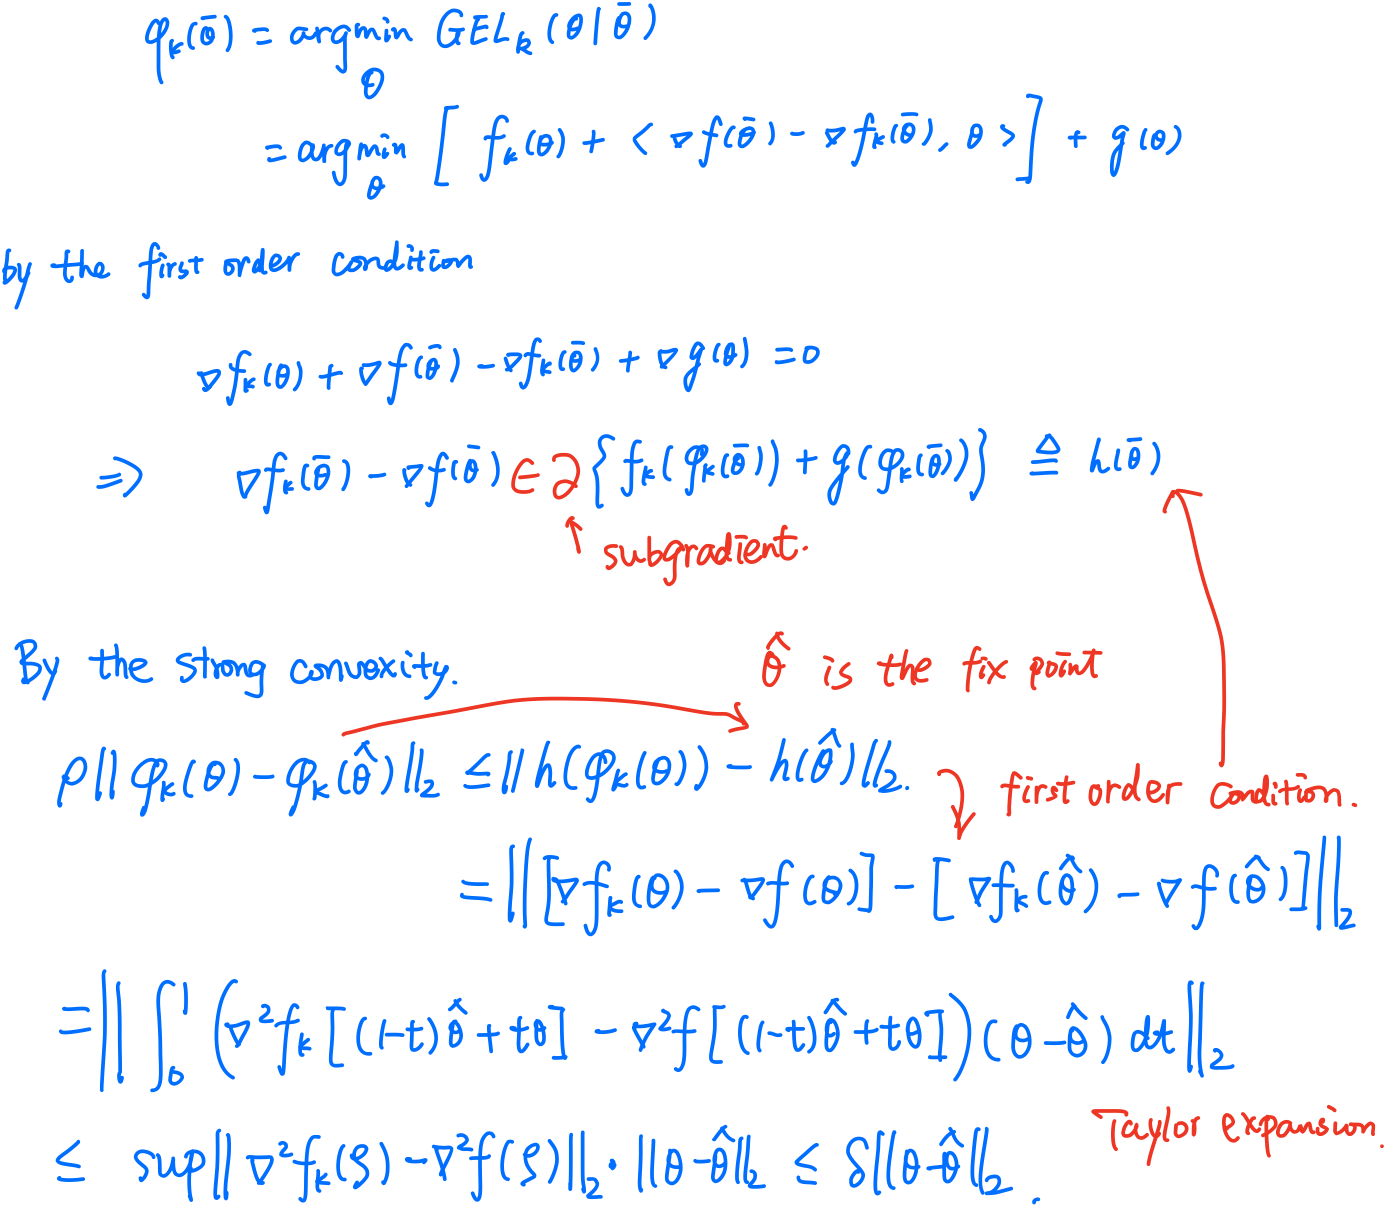 φₖ(θ̄) = argmin GELₖ(θ|θ̄)
θ
= argmin [ fₖ(θ) + <∇f(θ̄) - ∇fₖ(θ̄), θ> ] + g(θ)
θ
by the first order condition
∇fₖ(θ) + ∇f(θ̄) - ∇fₖ(θ̄) + ∇g(θ) = 0
⇒ ∇fₖ(θ̄) - ∇f(θ̄) ∈ ∂{fₖ(φₖ(θ̄)) + g(φₖ(θ̄))} ≜ h(θ̄)
↑ subgradient.
By the strong convexity.
θ̂ is the fix point
ρ‖φₖ(θ) - φₖ(θ̂)‖₂ ≤ ‖h(φₖ(θ)) - h(θ̂)‖₂.
first order condition.
= ‖[∇fₖ(θ) - ∇f(θ)] - [∇fₖ(θ̂) - ∇f(θ̂)]‖₂
= ‖∫₀¹ (∇²fₖ[(1-t)θ̂ + tθ] - ∇²f[(1-t)θ̂ + tθ])(θ - θ̂) dt‖₂
Taylor expansion.
≤ sup‖∇²fₖ(ξ) - ∇²f(ξ)‖₂ · ‖θ - θ̂‖₂ ≤ δ‖θ - θ̂‖₂.